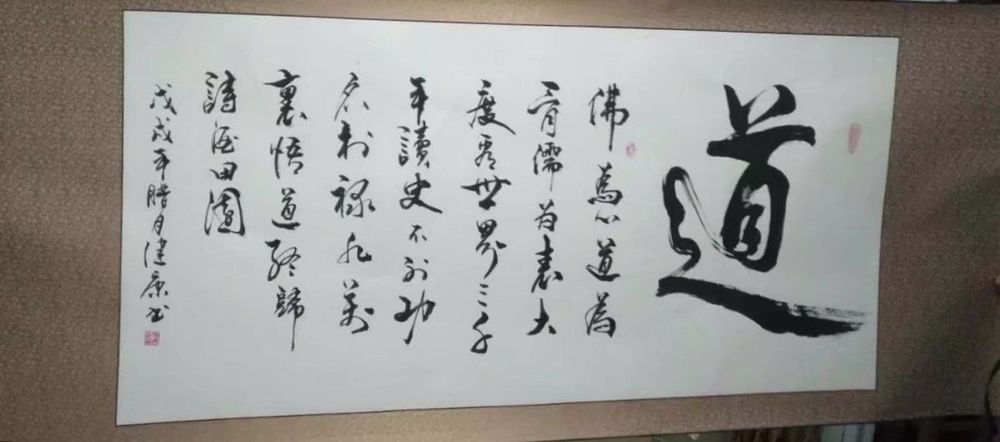 道
佛為心道為
骨儒为表大
度看世界三千
年讀史不外功
名利禄九萬
裏悟道終歸
詩酒田園
戊戌年腊月健康书